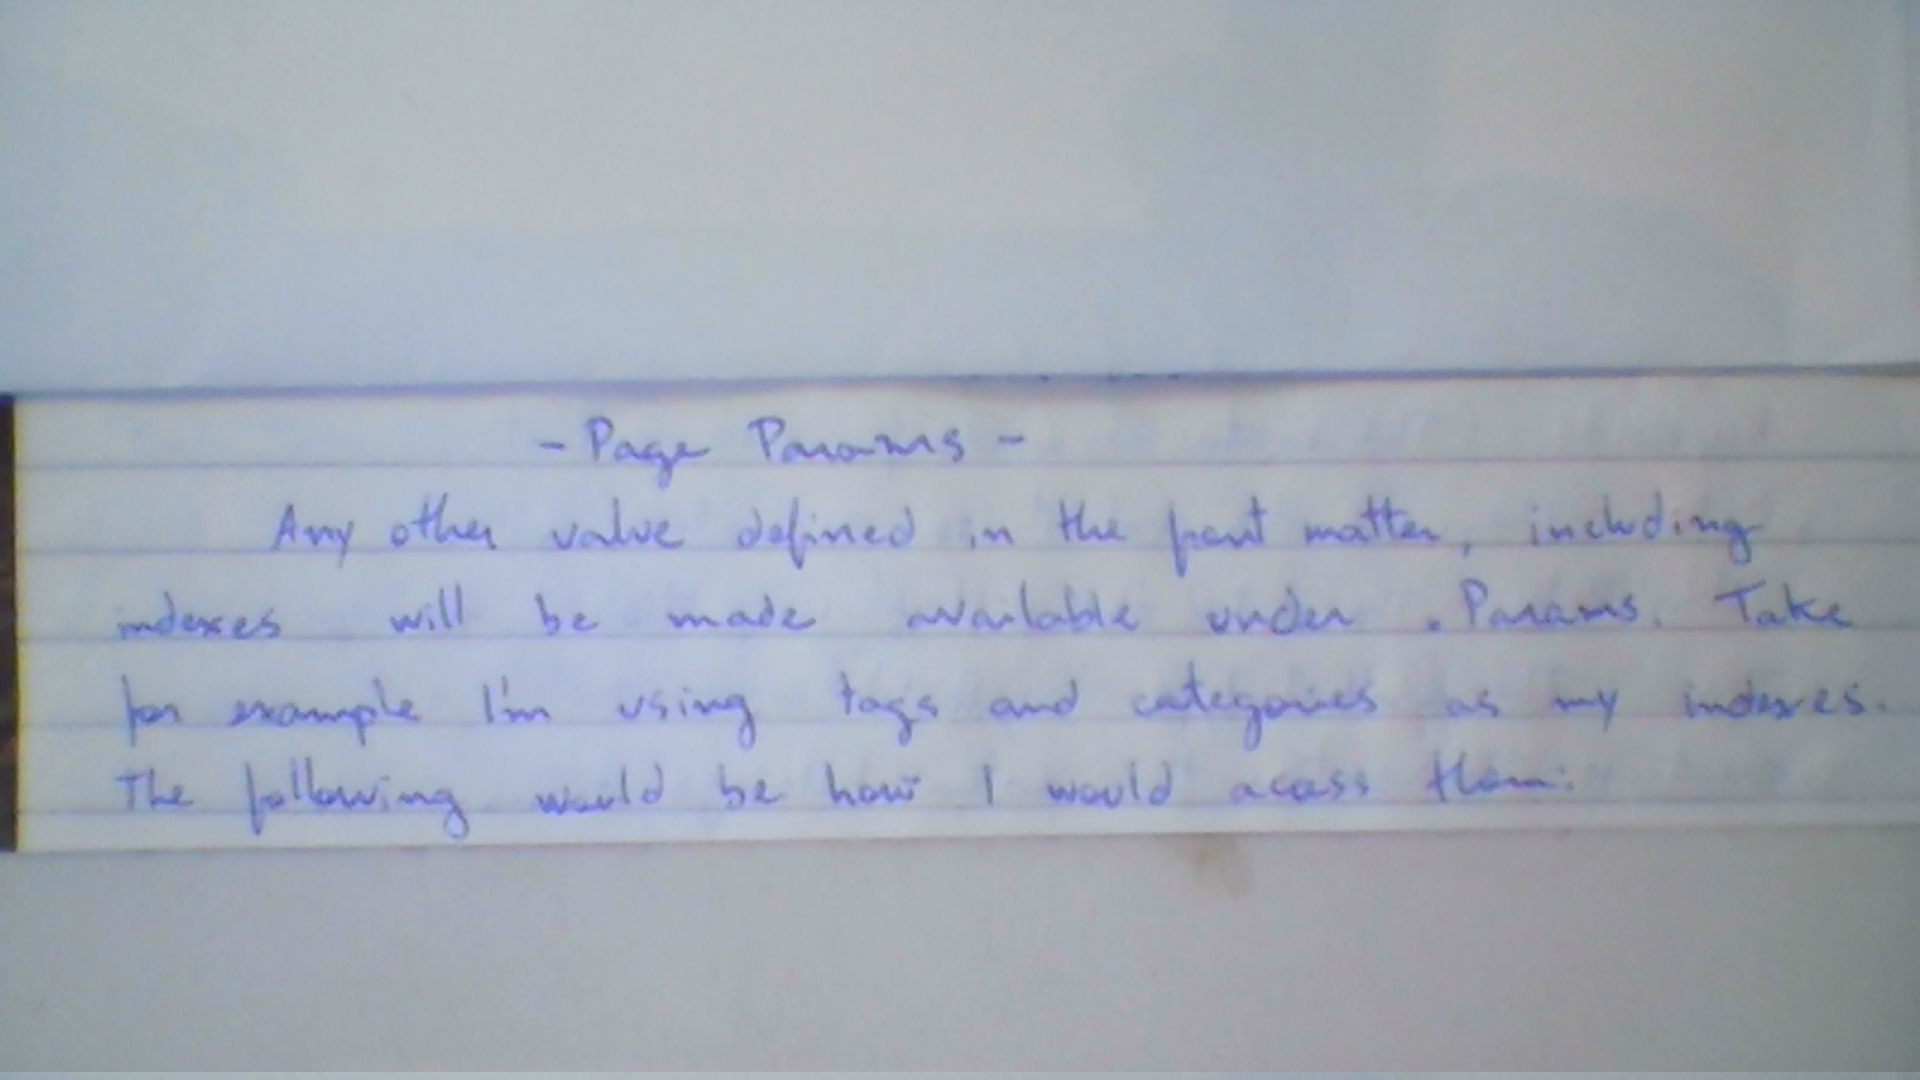 - Page Params -
Any other value defined in the front matter, including
indexes will be made available under .Params. Take
for example I'm using tags and categories as my indexes.
The following would be how I would access them: